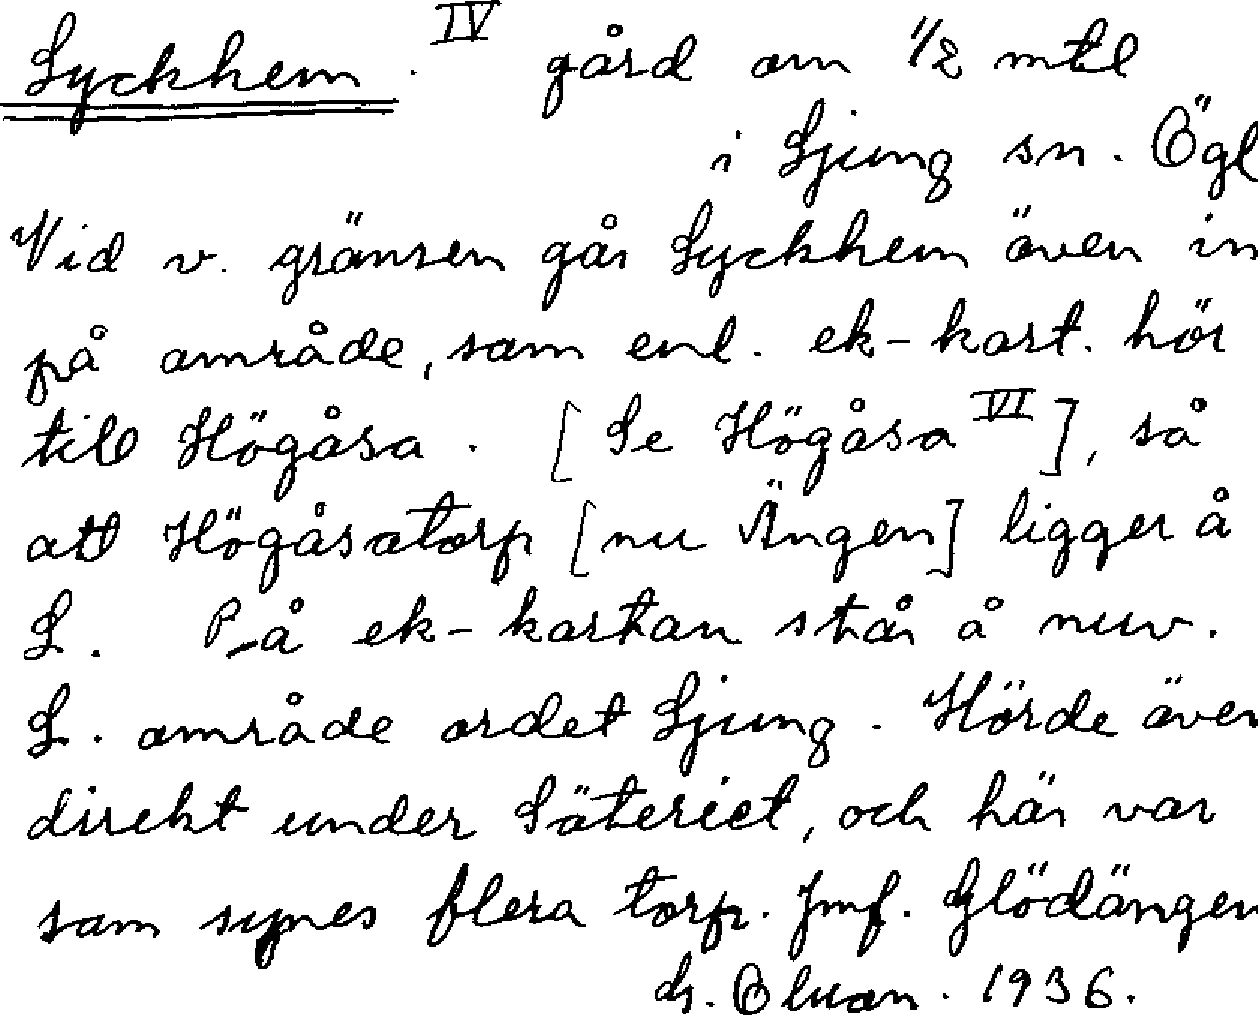 Lyckhem. IV gård om 1/2 mtl
i Ljung sn. Ögl
Vid v. gränsen går Lyckhem även in
på område, som enl. ek-kart. hör
till Högåsa. [Se Högåsa VI], så
att Högåsatorp [nu Ängen] ligger å
L. På ek-kartan står å nuv.
L. område ordet Ljung. Hörde även
direkt under Säteriet, och här var
som synes flera torp. Jmf. Glödängen
1936.